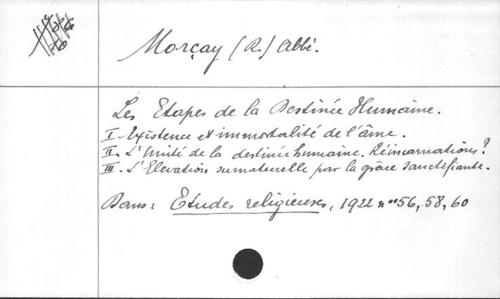 Morçay (R.) abbé.
Les Etapes de la Destinée Humaine.
I - Existence et immortalité de l'âme.
II - L'Unité de la destinée humaine. Réincarnations?
III - L'Elevation surnaturelle par la grâce sanctifiante.
Dans: Etudes religieuses, 1922 nos 56, 58, 60